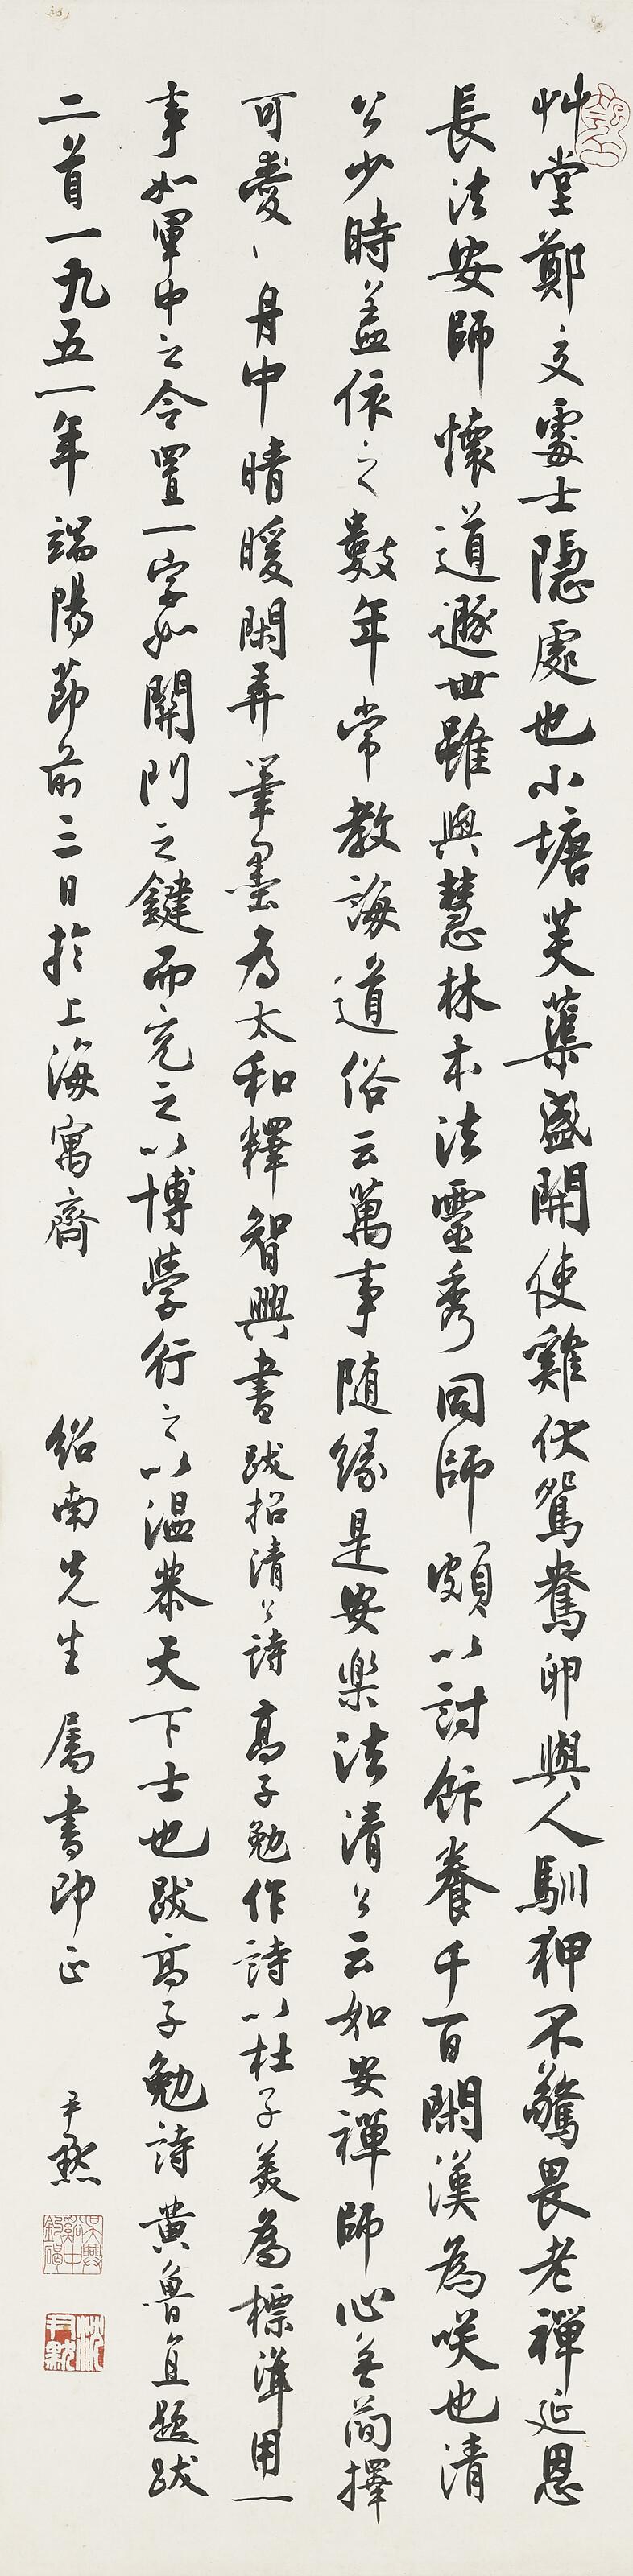 艸堂鄭交處士隱處也小塘芙蕖盛開使雞伏鴛鴦卵與人馴狎不驚畏老禪延恩
長法安師懷道遯世雖與慧林本法雲秀同師頗以討飰養千百閑漢為咲也清
公少時蓋依之數年常教誨道俗云萬事隨緣是安樂法清公云如安禪師心無蕳擇
可愛〻舟中晴暖閑弄筆墨為太和釋智興書跋招清公詩高子勉作詩以杜子美為標準用一
事如軍中之令置一字如關門之鍵而充之以博學行之以溫恭天下士也跋高子勉詩黃魯直題跋
二首一九五一年端陽節前三日於上海寓齋 紹南先生屬書即正 尹默
沈尹默